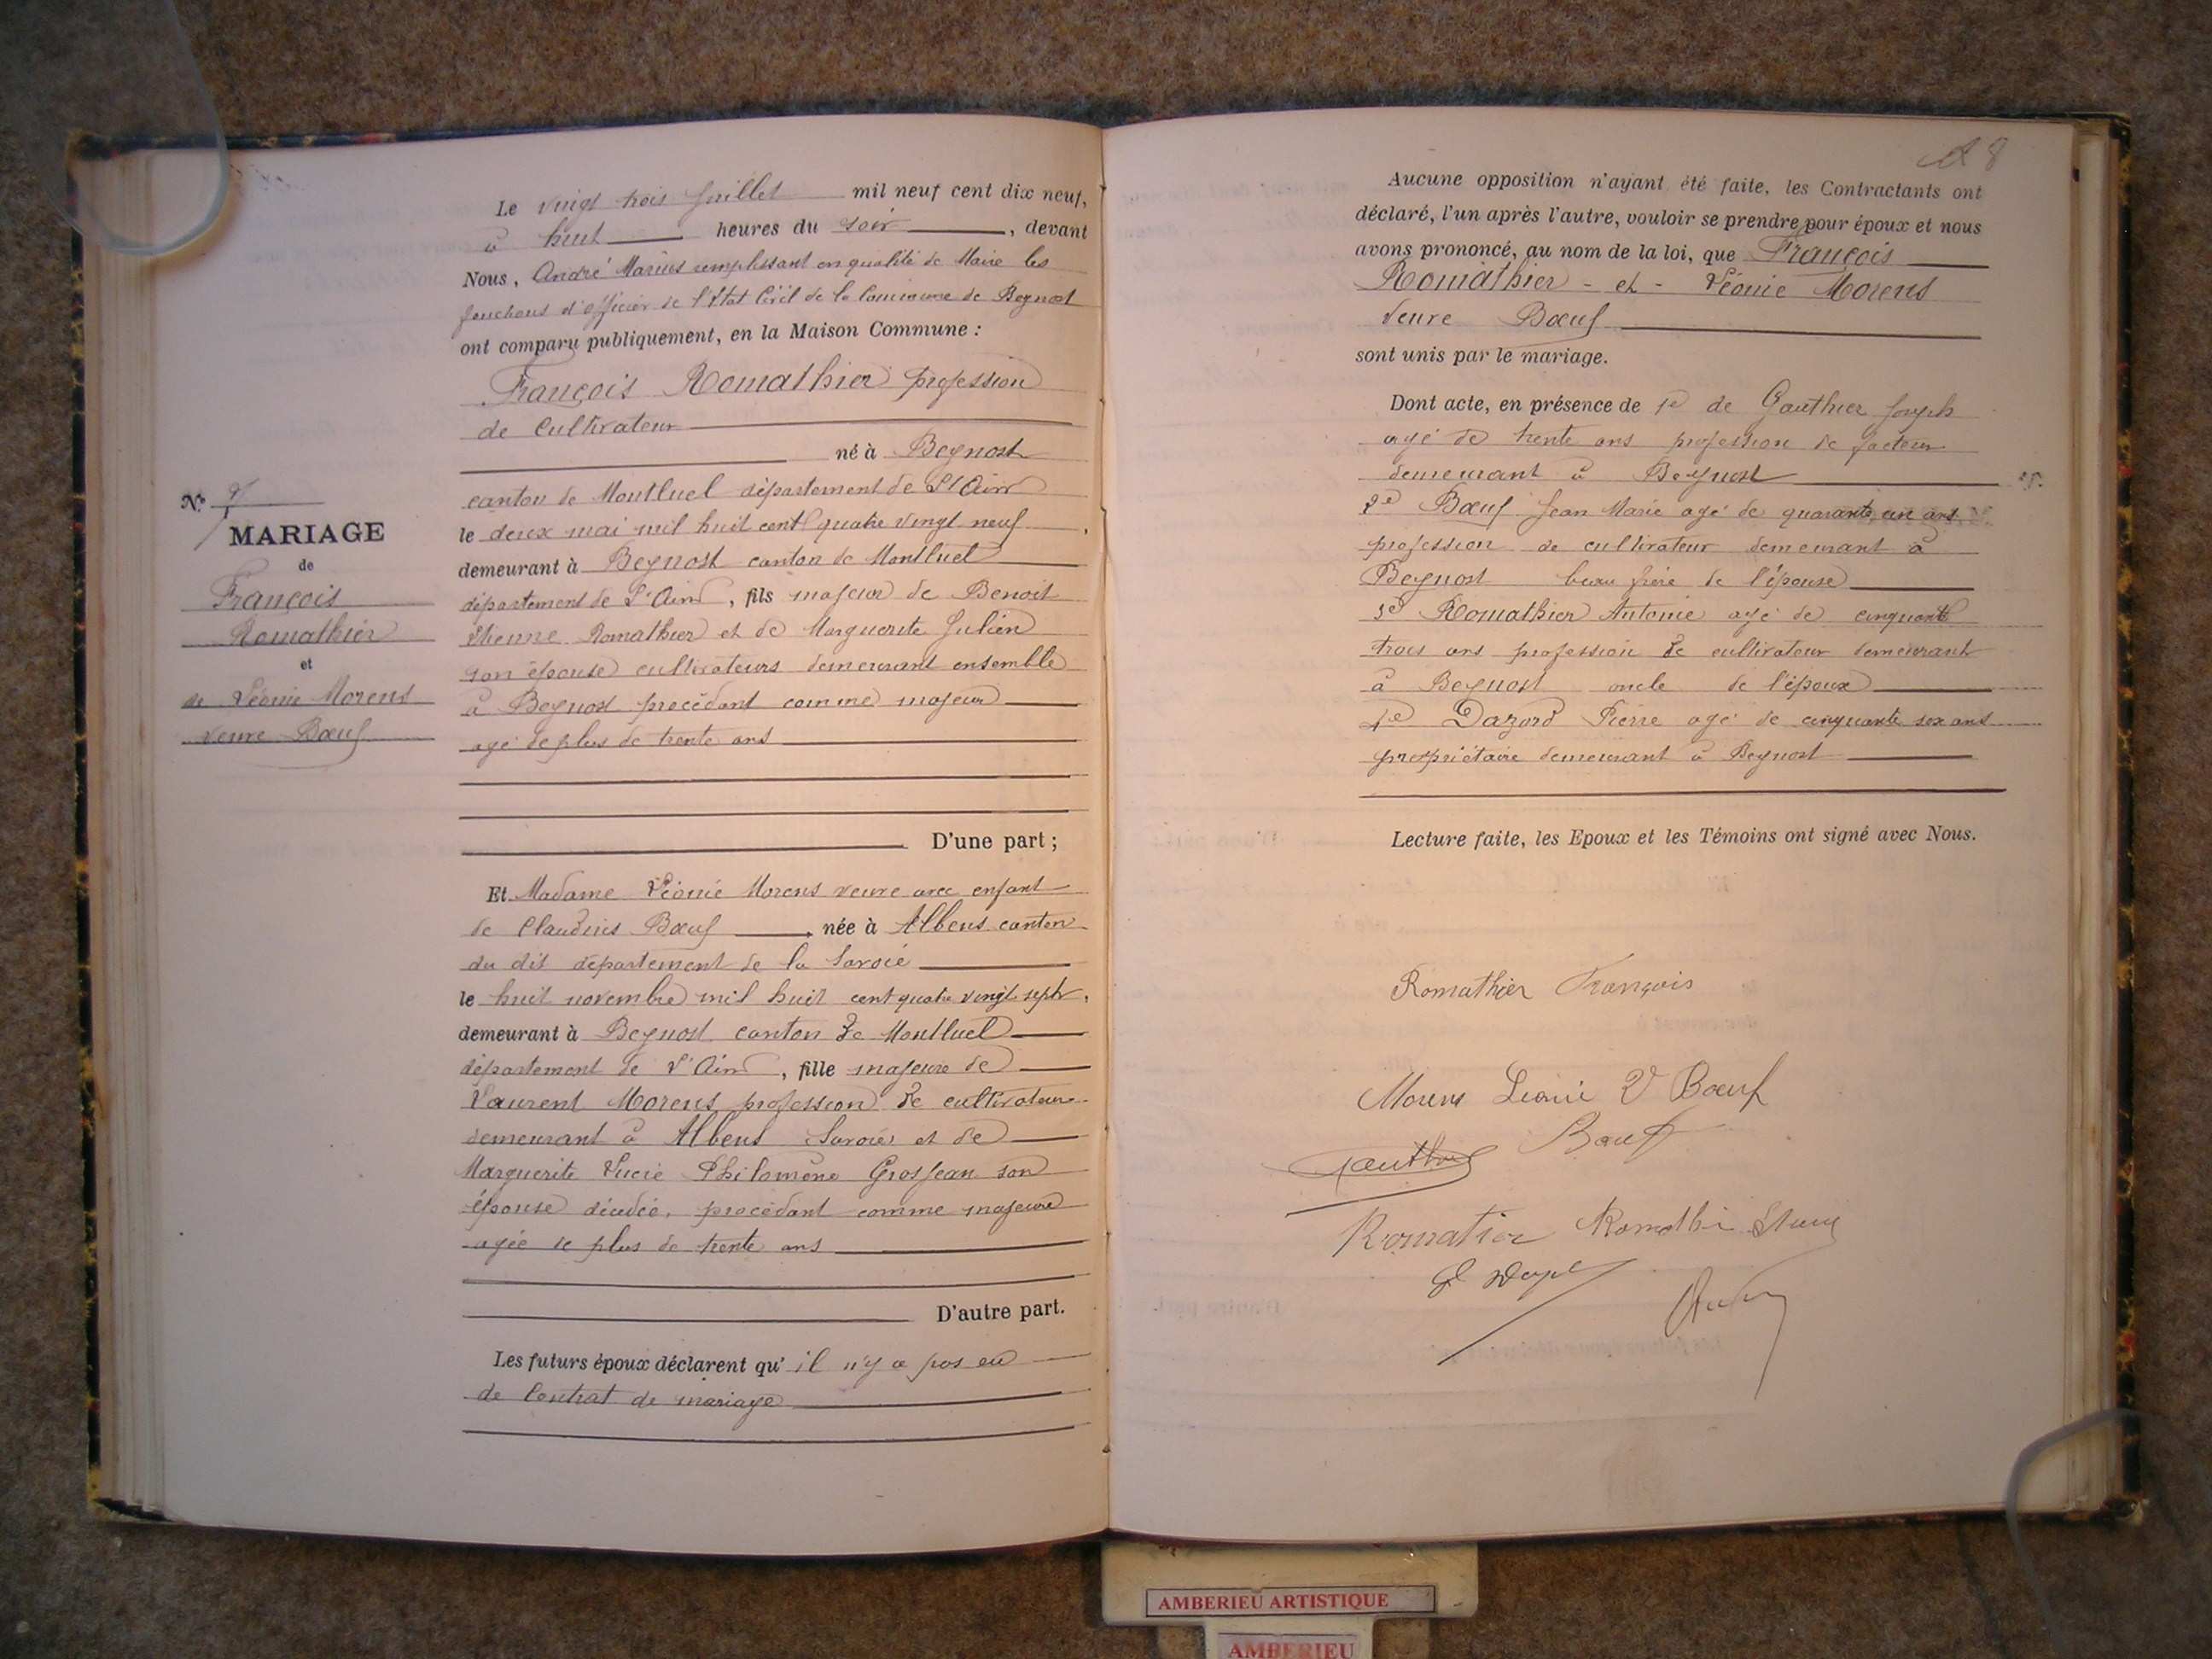 Le vingt trois Juillet mil neuf cent dix neuf,
à huit heures du soir, devant
Nous, André Marius remplissant en qualité de Maire les
fonctions d'officier de l'Etat Civil de la Commune de Beynost
ont comparu publiquement, en la Maison Commune :
François Romathier profession
de Cultivateur
né à Beynost
canton de Montluel département de l'Ain
le deux mai mil huit cent quatre vingt neuf,
demeurant à Beynost canton de Montluel
département de l'Ain, fils majeur de Benoit
Etienne Romathier et de Marguerite Julien
son épouse cultivateurs demeurant ensemble
à Beynost procédant comme majeur
agé de plus de trente ans
D'une part ;
Et Madame Léonie Morens veuve avec enfant
de Claudius Bœuf, née à Albens canton
du dit département de la Savoie
le huit novembre mil huit cent quatre vingt sept,
demeurant à Beynost canton de Montluel
département de l'Ain, fille majeure de
Laurent Morens profession de cultivateur
demeurant à Albens Savoie et de
Marguerite Lucie Philomène Grosjean son
épouse décédée, procédant comme majeure
agée de plus de trente ans
D'autre part.
Les futurs époux déclarent qu'il n'y a pas eu
de Contrat de mariage
N°
MARIAGE
de
François
Romathier
et
de Léonie Morens
veuve Bœuf
8
Aucune opposition n'ayant été faite, les Contractants ont
déclaré, l'un après l'autre, vouloir se prendre pour époux et nous
avons prononcé, au nom de la loi, que François
Romathier - et - Léonie Morens
veuve Bœuf
sont unis par le mariage.
Dont acte, en présence de 1e de Gauthier Joseph
agé de trente ans profession de facteur
demeurant à Beynost
2e Bœuf Jean Marie agé de quarante un ans
profession de cultivateur demeurant à
Beynost beau frère de l'épouse
3e Romathier Antoine agé de cinquante
trois ans profession de cultivateur demeurant
à Beynost oncle de l'époux
4e Dazord Pierre agé de cinquante six ans
propriétaire demeurant à Beynost
Lecture faite, les Epoux et les Témoins ont signé avec Nous.
Romathier François
Morens Léonie V Bœuf
Gauthier Bœuf
Romatier
AMBERIEU ARTISTIQUE
AMBERIEU